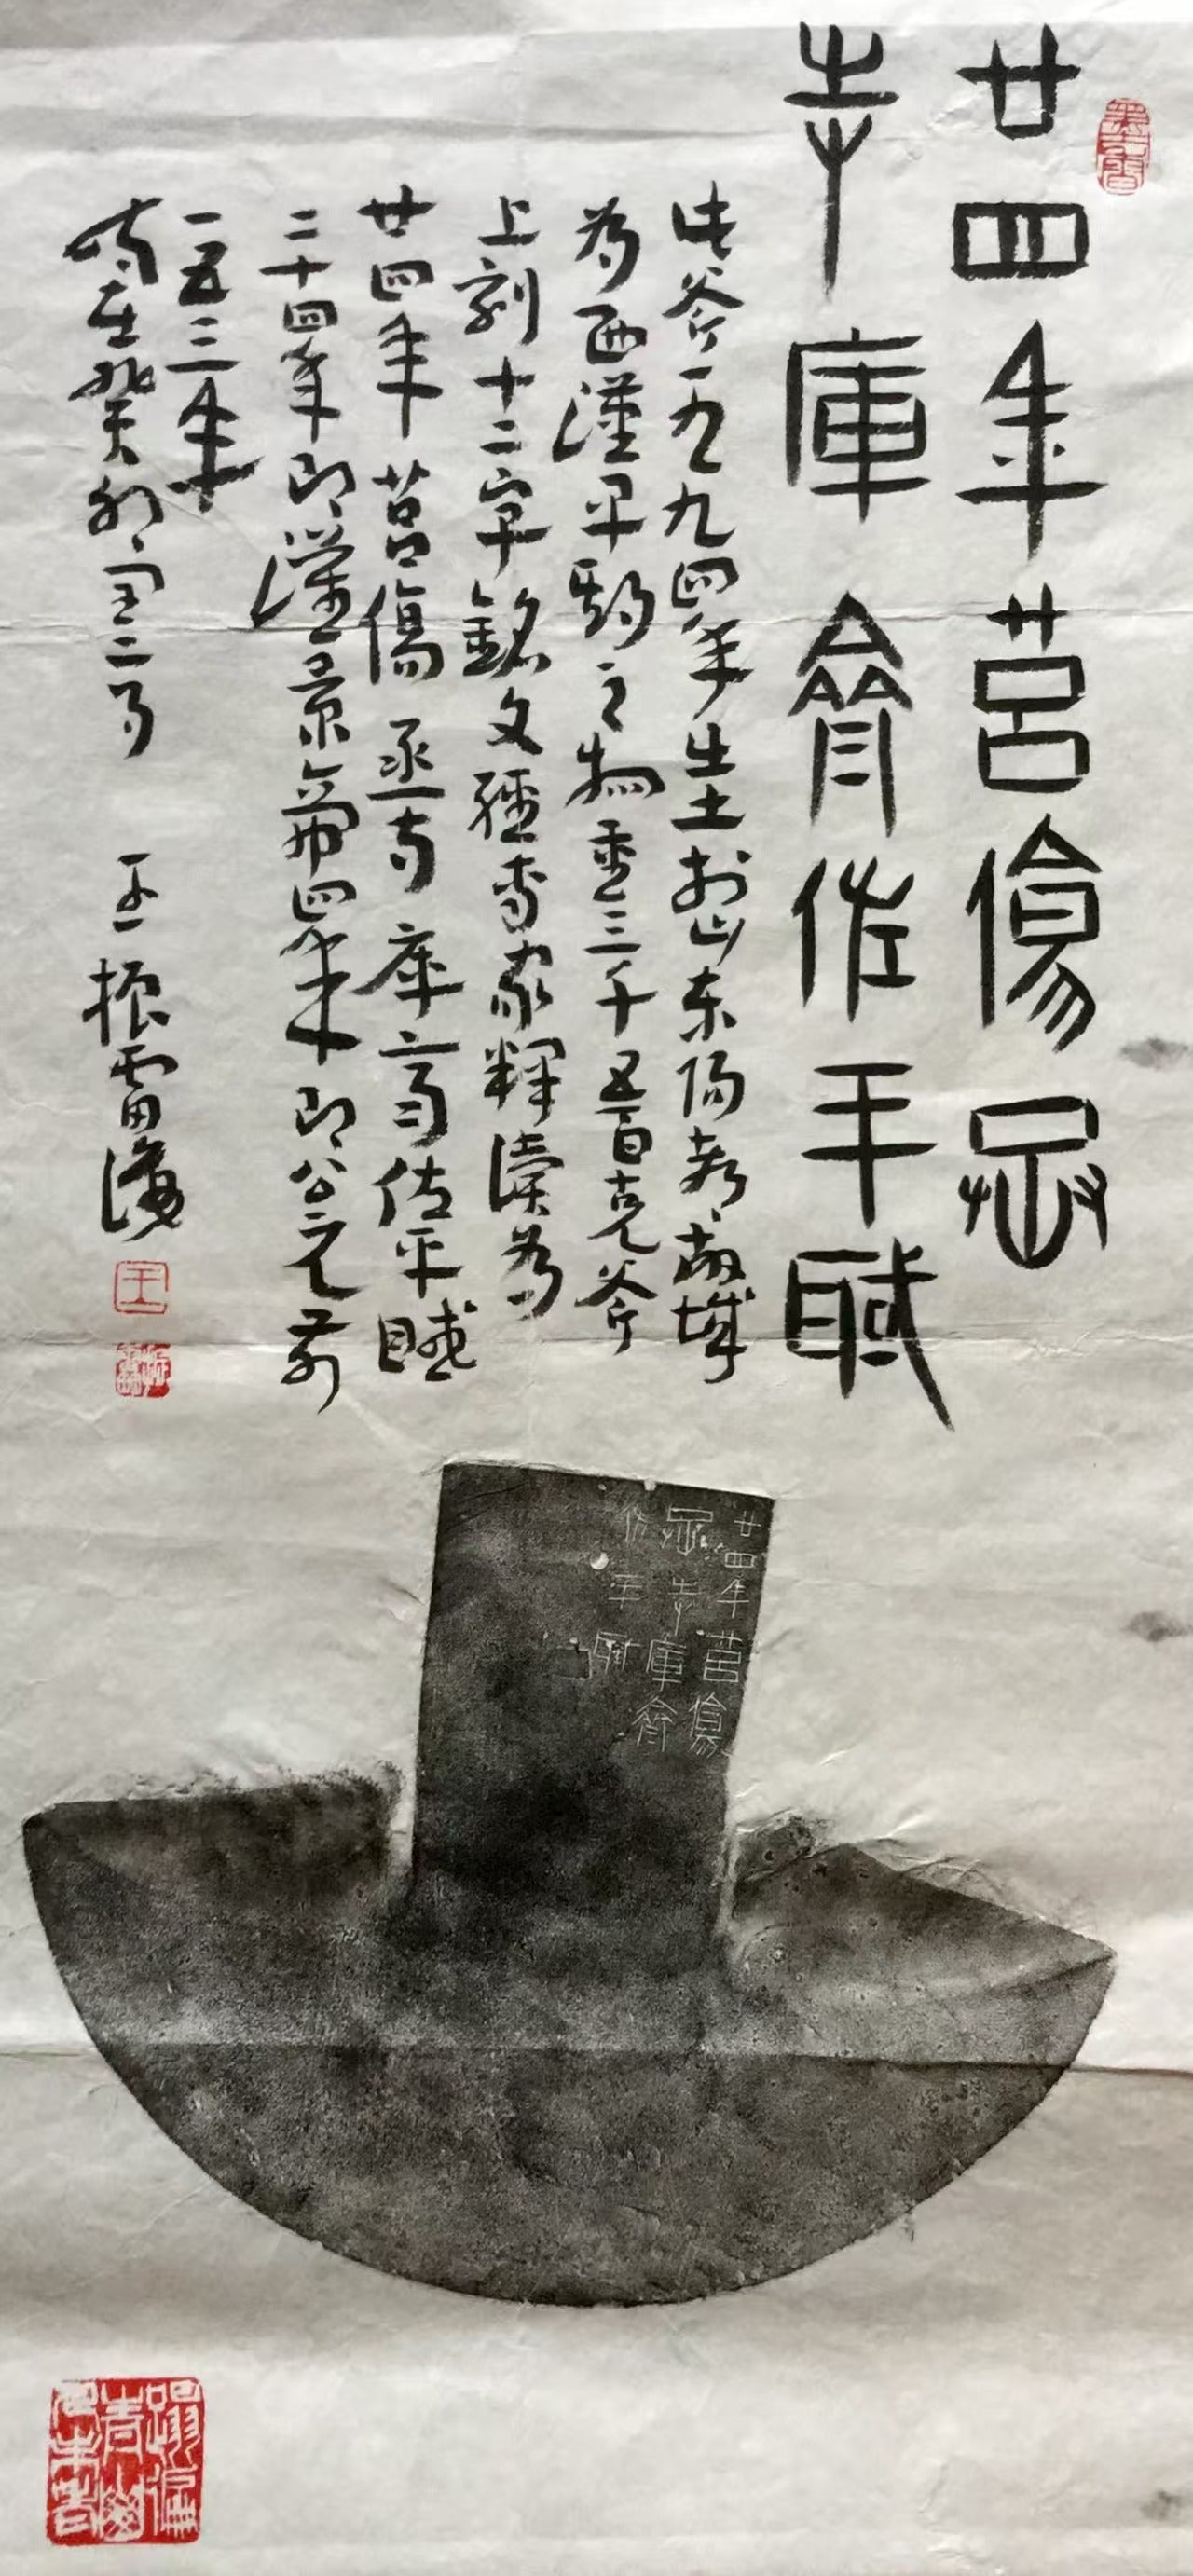 廿四年莒傷丞
寺庫齊作平賦
此斧一九九四年出土於山東陽都故城
為西漢早期之物重三千五百克斧
上刻十二字銘文經專家釋讀為
廿四年莒傷丞寺庫齊佐平賦
二十四年即漢景帝四年即公元前
一五三年
時在癸卯閏二月 王振雷
廿四年莒傷
丞寺庫齊
作平
王